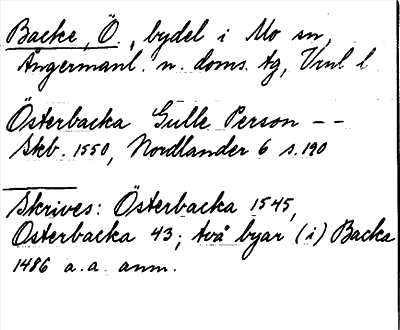 Backe, Ö., bydel i Mo sn,
Ångermanl. n. doms. tg, Vnl l
Österbacka Gulle Person - -
Skb. 1550, Nordlander 6 s. 190
Skrives: Österbacka 1545,
Osterbacka 43; två byar (i) Backa
1486 a.a. anm.